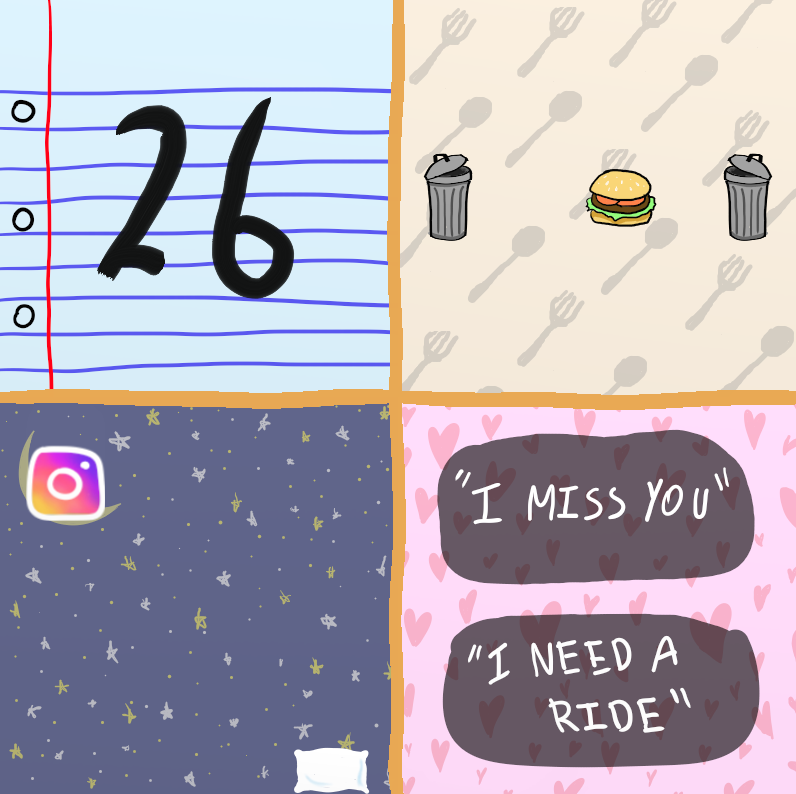 26
"I MISS YOU"
"I NEED A
RIDE"